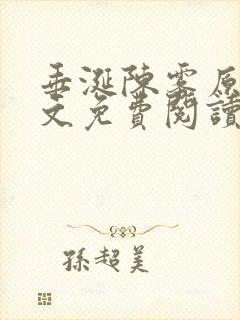 垂涎陳雾原
文免費閱讀
孫超美